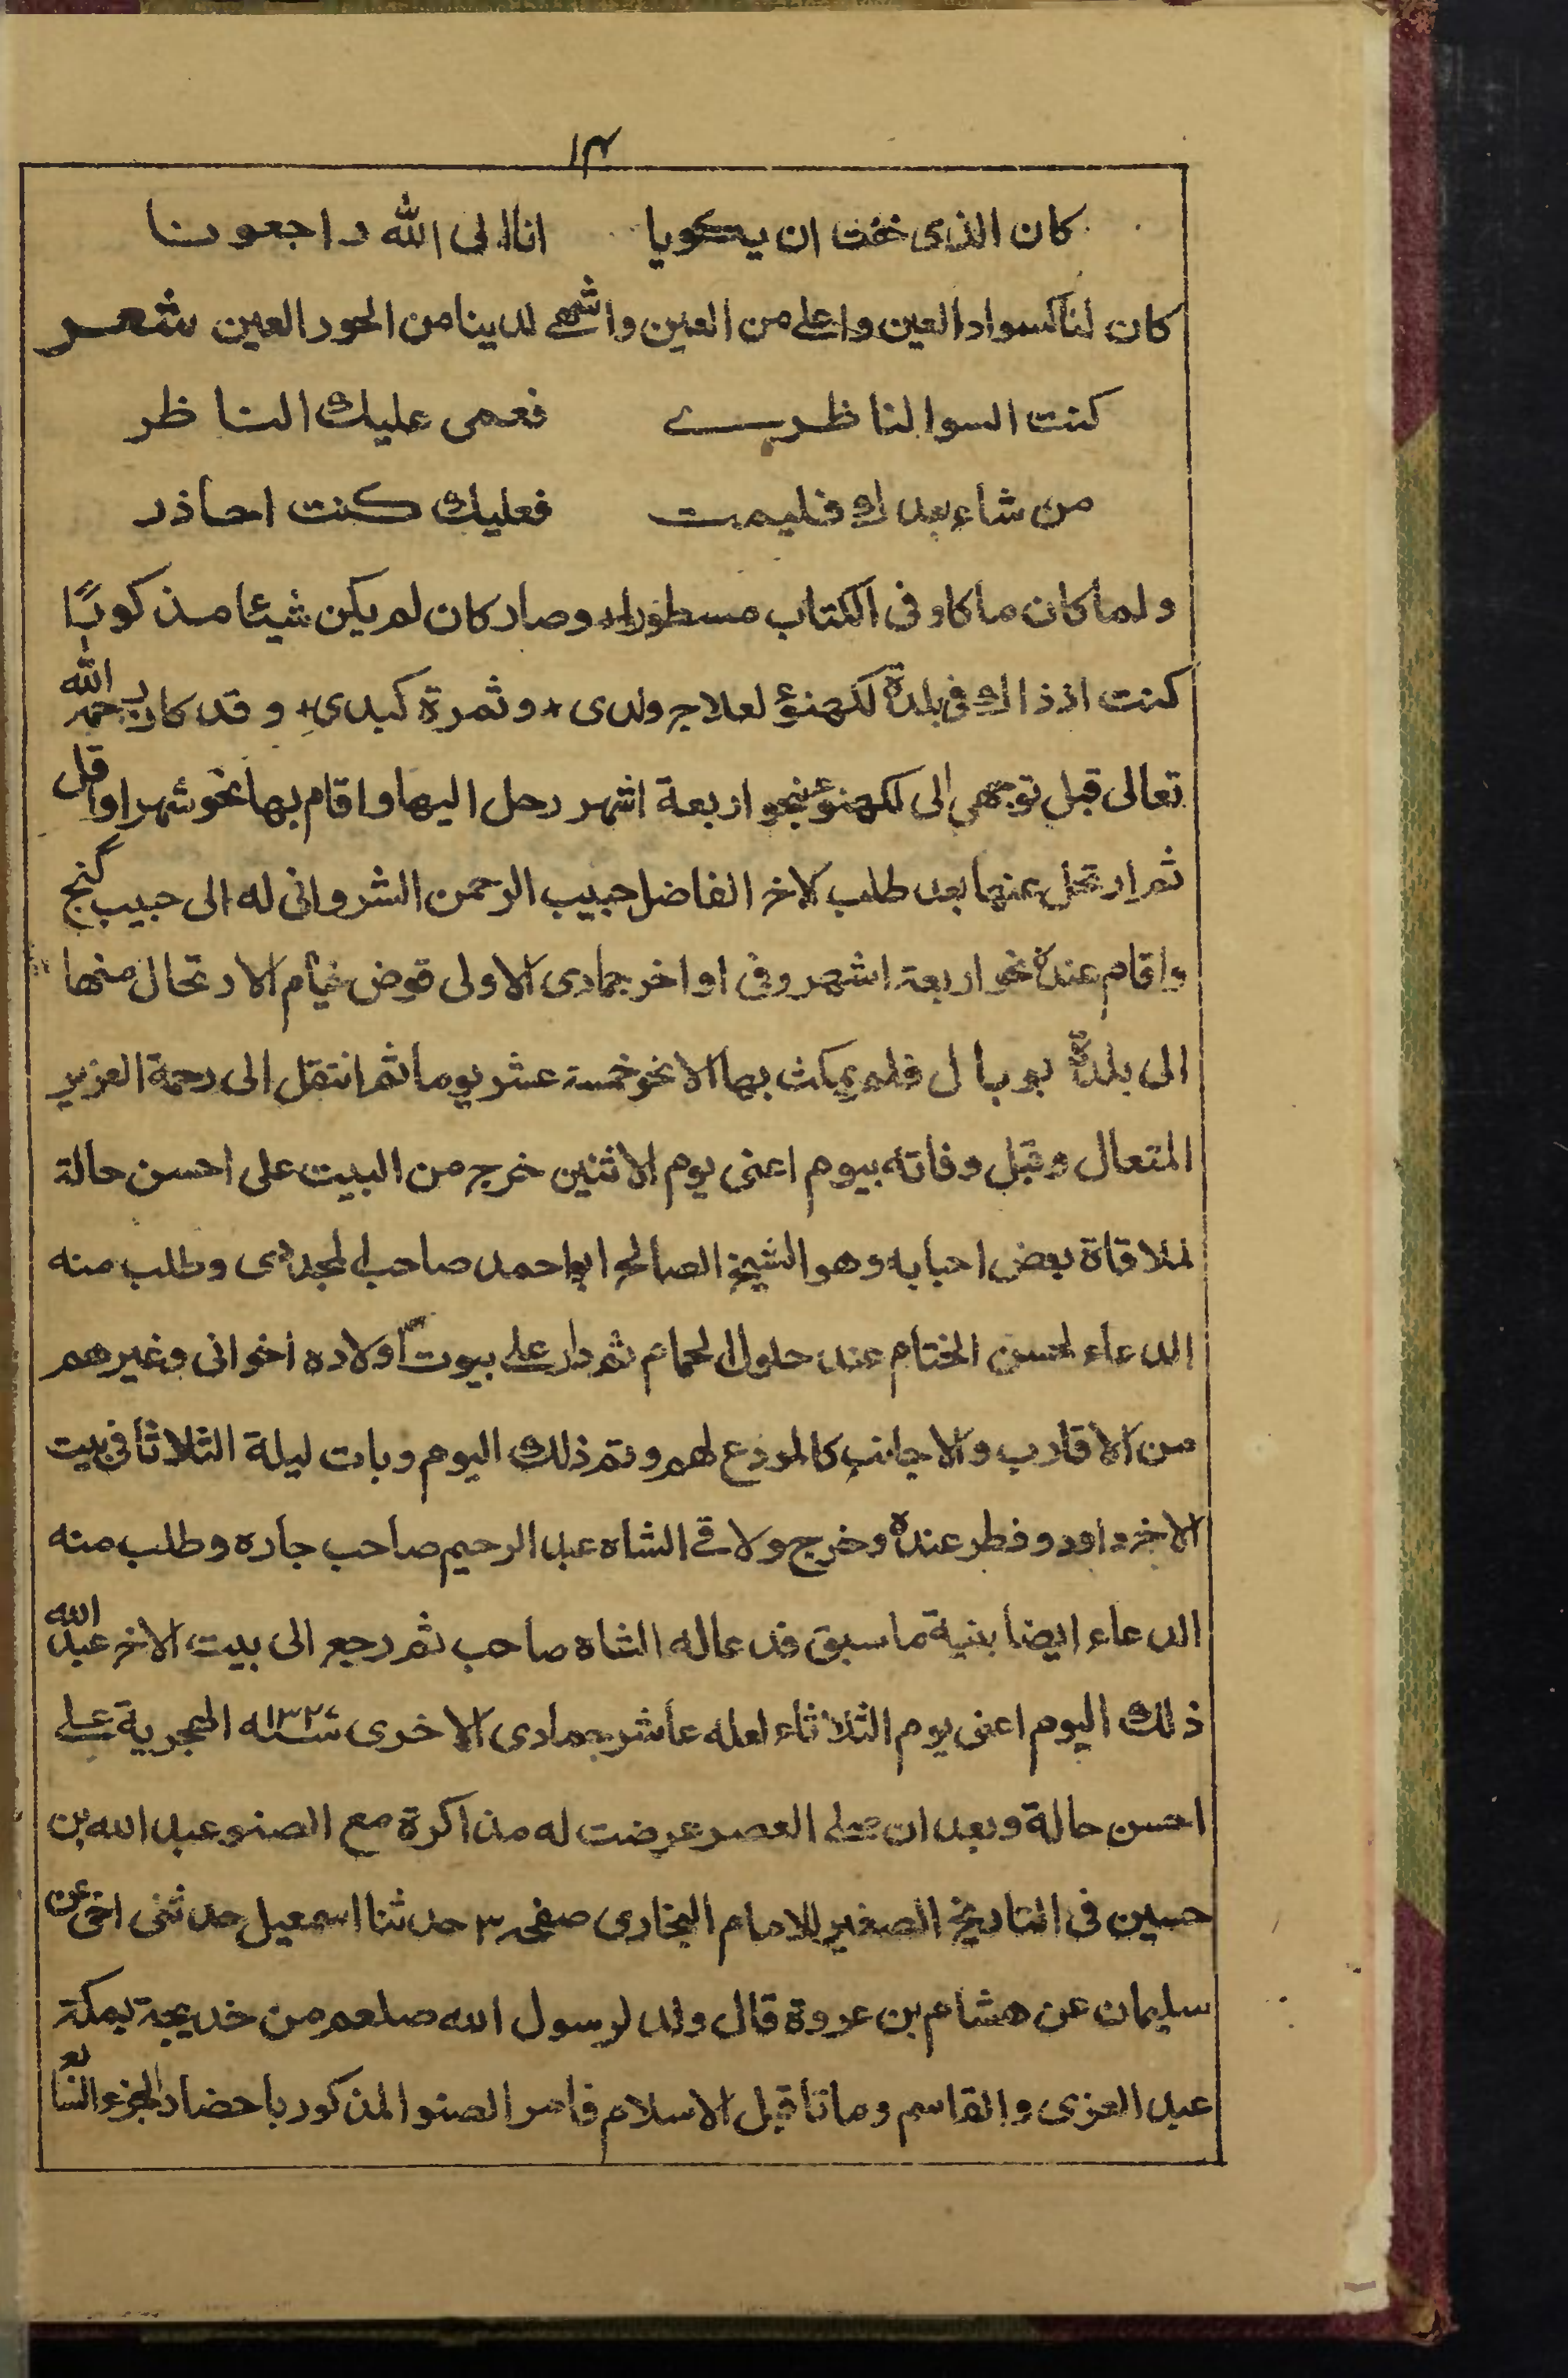 ١٣
كان الذى خفت ان يكويا انا الى الله راجعونا
كان لنا كسواد العين واعلى من العين واشهى لدينا من الحور العين شعر
كنت السوا لناظرى فعمى عليك الناظر
من شاء بعدك فليمت فعليك كنت احاذر
ولما كان ما كان فى الكتاب مسطورا وصار كان لم يكن شيئا مذكورًا
كنت اذ ذاك فى بلدة لكهنؤ لعلاج ولدى + وثمرة كبدى + وقد كان رحمه الله
تعالى قبل توجهى الى لكهنؤ بنحو اربعة اشهر رحل اليها واقام بها نحو شهر او اقل
ثم ارتحل عنها بعد طلب الاخ الفاضل حبيب الرحمن الشروانى له الى حبيب گنج
واقام عنده نحو اربعة اشهر وفى اواخر جمادى الاولى قوض خيام الارتحال منها
الى بلدة بوبال فلم يمكث بها الا نحو خمسة عشر يوما ثم انتقل الى رحمة العزيز
المتعال وقبل وفاته بيوم اعنى يوم الاثنين خرج من البيت على احسن حالة
لملاقاة بعض احبابه وهو الشيخ الصالح ابو احمد صاحب المجددى وطلب منه
الدعاء لحسن الختام عند حلول الحمام ثم دار على بيوت اولاده اخوانى وغيرهم
من الاقارب والاجانب كالمودع لهم وتم ذلك اليوم وبات ليلة الثلاثا فى بيت
الاخ داود وفطر عنده وخرج ولاقى الشاه عبد الرحيم صاحب جاره وطلب منه
الدعاء ايضا بنية ما سبق فدعا له الشاه صاحب ثم رجع الى بيت الاخ عبد الله
ذلك اليوم اعنى يوم الثلاثاء لعله عاشر جمادى الاخرى سنه ١٣٢٧ الهجرية على
احسن حالة وبعد ان صلى العصر عرضت له مذاكرة مع الصنو عبد الله بن
حسين فى التاريخ الصغير للامام البخارى صفحه ٣ حدثنا اسمعيل حدثنى اخى عن
سليمان عن هشام بن عروة قال ولد لرسول الله صلعم من خديجة بمكة
عبد العزى والقاسم وماتا قبل الاسلام فامر الصنو المذكور باحضار الجزء الثانى